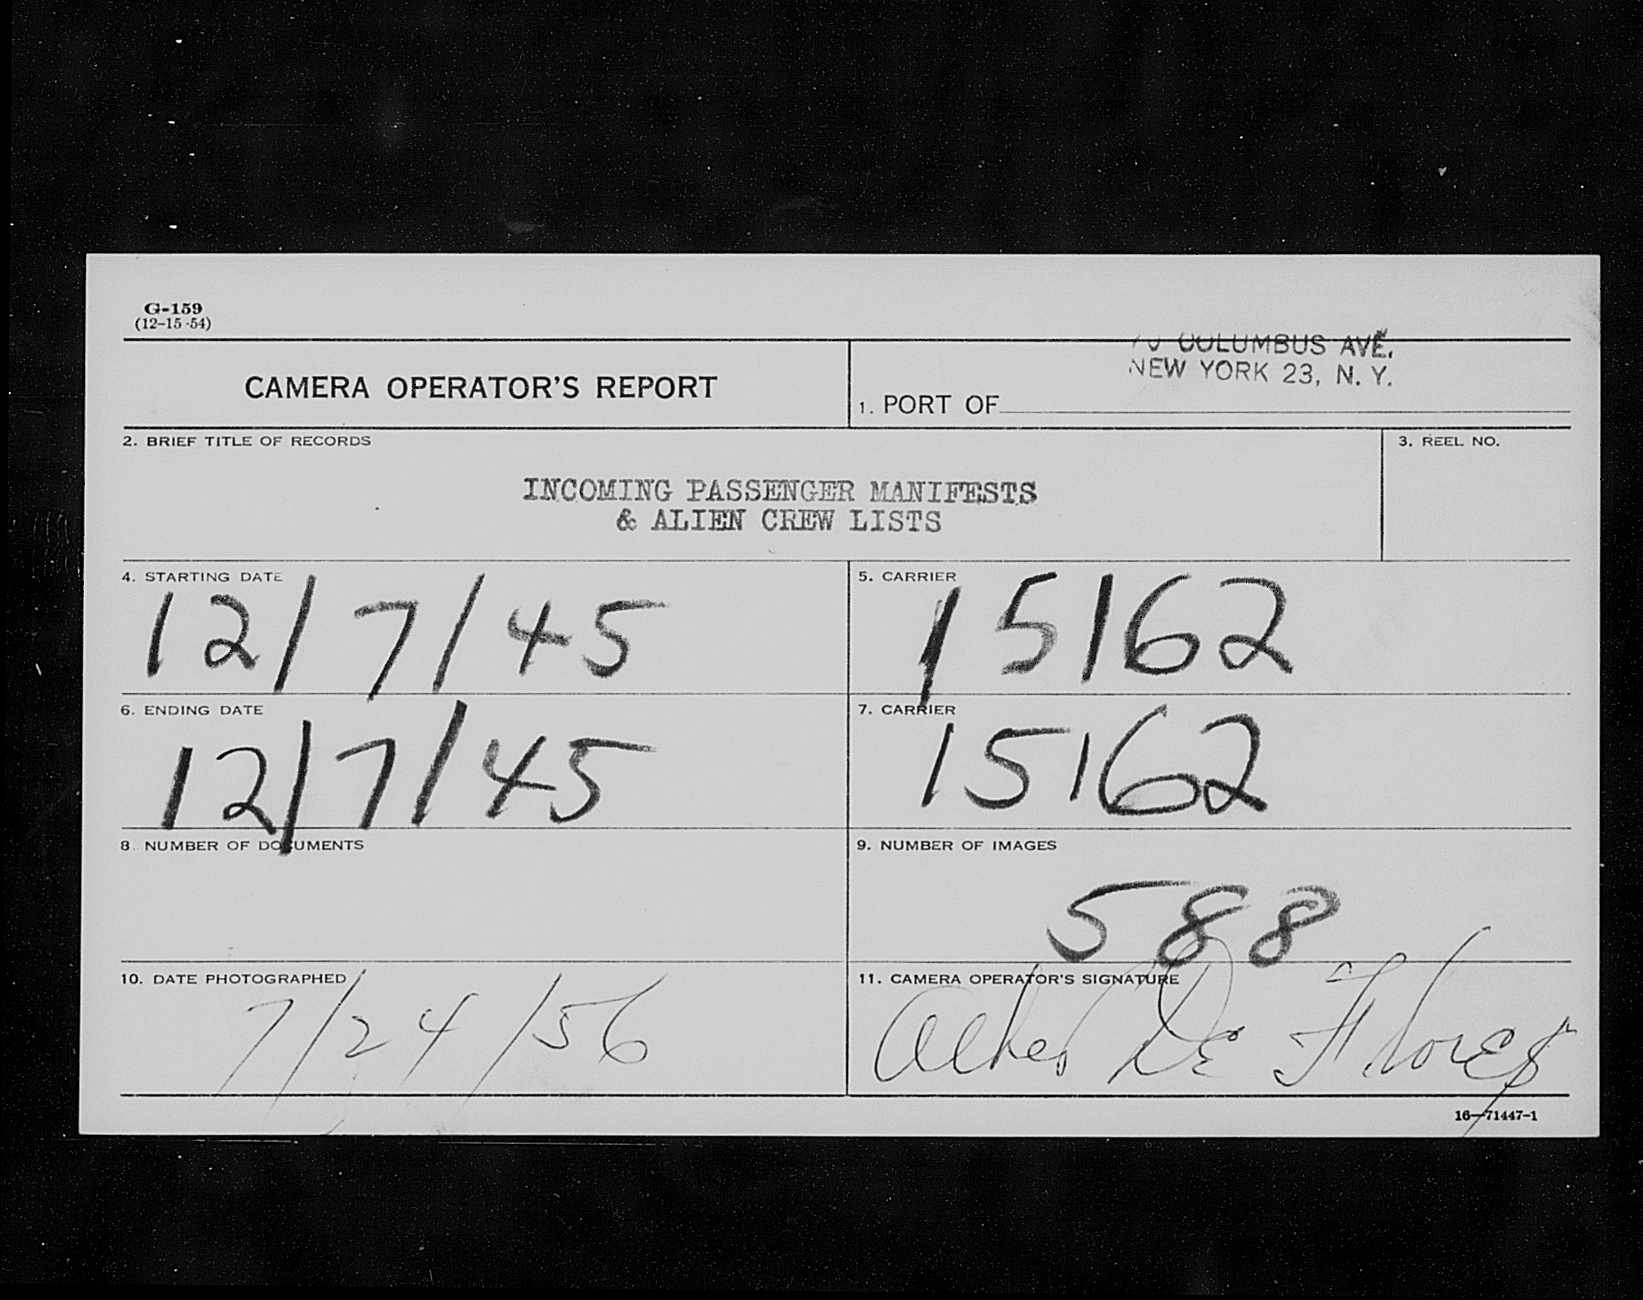 G-159
(12-15-54)
COLUMBUS AVE.
NEW YORK 23, N. Y.
CAMERA OPERATOR'S REPORT
1. PORT OF
2. BRIEF TITLE OF RECORDS
3. REEL NO.
INCOMING PASSENGER MANIFESTS
& ALIEN CREW LISTS
4. STARTING DATE
12/7/45
5. CARRIER
15162
6. ENDING DATE
12/7/45
7. CARRIER
15162
8. NUMBER OF DOCUMENTS
9. NUMBER OF IMAGES
588
10. DATE PHOTOGRAPHED
7/24/56
11. CAMERA OPERATOR'S SIGNATURE
De Flores
16—71447-1